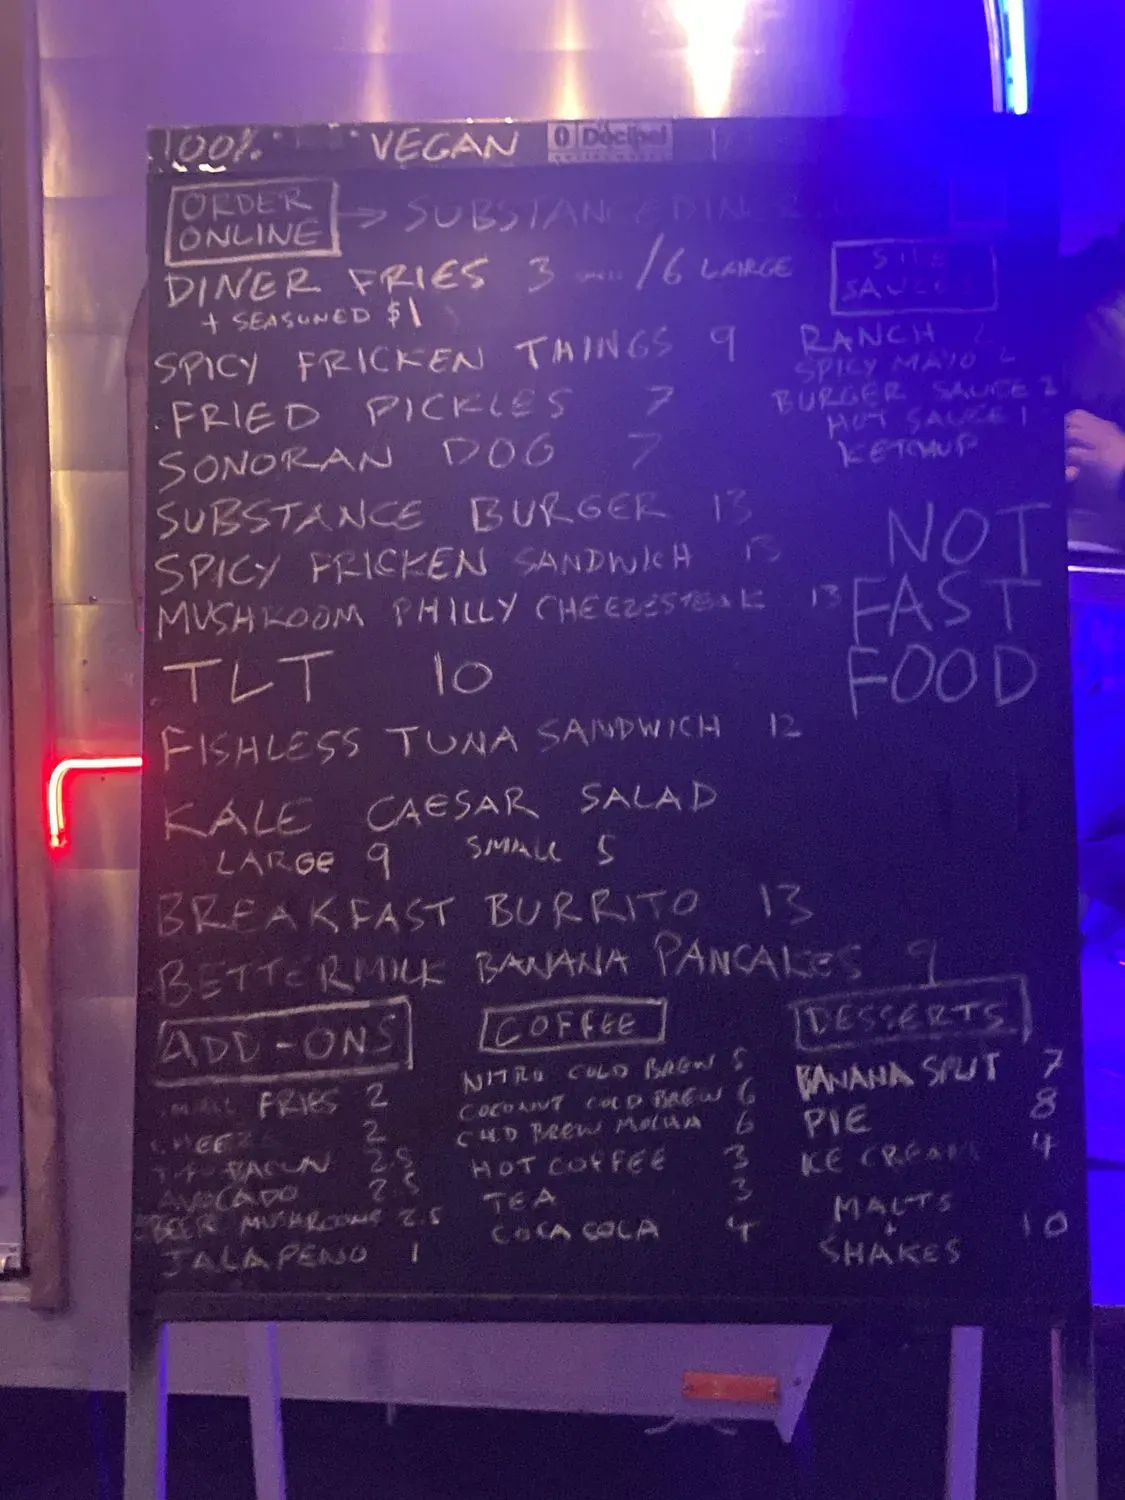 100% VEGAN 0 Decibel
ORDER
ONLINE → SUBSTANCEDINER
DINER FRIES 3 /6 LARGE
+ SEASONED $1
SPICY FRICKEN THINGS 9
FRIED PICKLES 7
SONORAN DOG 7
SUBSTANCE BURGER 13
SPICY FRICKEN SANDWICH 13
MUSHROOM PHILLY CHEEZESTEAK 13
TLT 10
FISHLESS TUNA SANDWICH 12
KALE CAESAR SALAD
LARGE 9 SMALL 5
BREAKFAST BURRITO 13
BETTERMILK BANANA PANCAKES 9
SIDE
SAUCES
RANCH 2
SPICY MAYO 2
BURGER SAUCE 2
HOT SAUCE 1
KETCHUP
NOT
FAST
FOOD
ADD-ONS
SMALL FRIES 2
CHEEZE 2
TOFU BACUN 2.5
AVOCADO 2.5
BEER MUSHROOMS 2.5
JALAPENO 1
COFFEE
NITRO COLD BREW 5
COCONUT COLD BREW 6
COLD BREW MOCHA 6
HOT COFFEE 3
TEA 3
COCA COLA 4
DESSERTS
BANANA SPLIT 7
PIE 8
ICE CREAM 4
MALTS
+
SHAKES 10